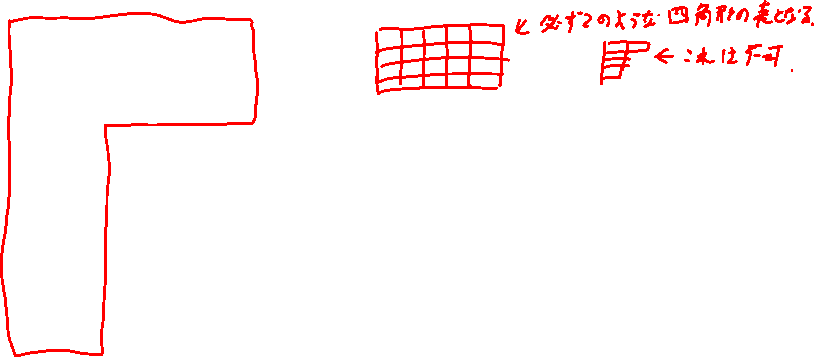 ← 必ずこのような四角形の表となる。
← これは不可.